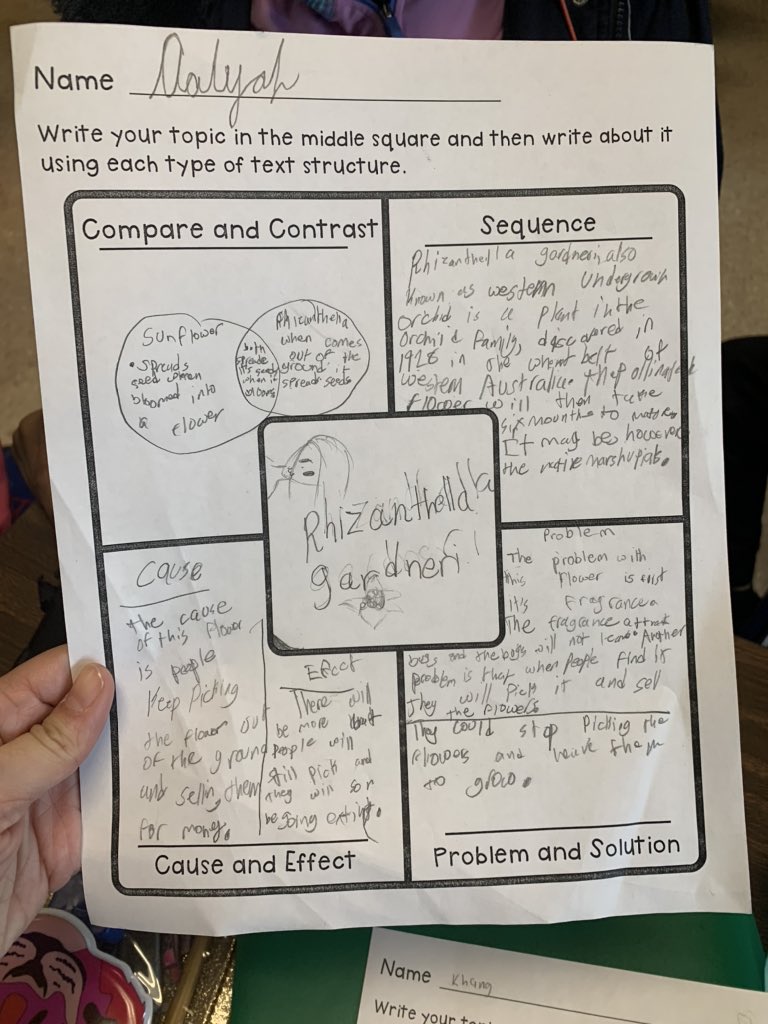 Name Aalyah
Write your topic in the middle square and then write about it
using each type of text structure.
Compare and Contrast
Sunflower
• Spreads
seed when
bloomed into
a
flower
both
spreads
it's seed
when it
blooms
Rhizanthella
when comes
out of the
ground it
spreads seeds
Sequence
Rhizanthella gardneri, also
known as western Undergroun
orchid is a plant in the
Orchid family, discovered in
1928 in the wheat belt of
western Australia. The pollinated
flower will then take
six mounths to mature
It may be however
the native marshupials.
Rhizanthella
gardneri
Cause
the cause
of this flower
is people
keep picking
the flower out
of the ground
and selling them
for money.
Effect
There will
be more but
people will
still pick and
they will son
be going extint.
Cause and Effect
Problem
The problem with
this flower is
It's fragrance.
The fragrance attract
bugs and the bugs will not leave. Another
problem is that when people find it
they will pick it and sell
the flowers
They could stop picking the
flowers and leave them
to grow.
Problem and Solution
Name Khang
Write your